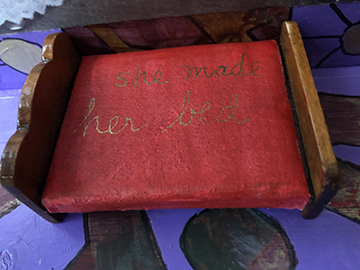 she made
her bed